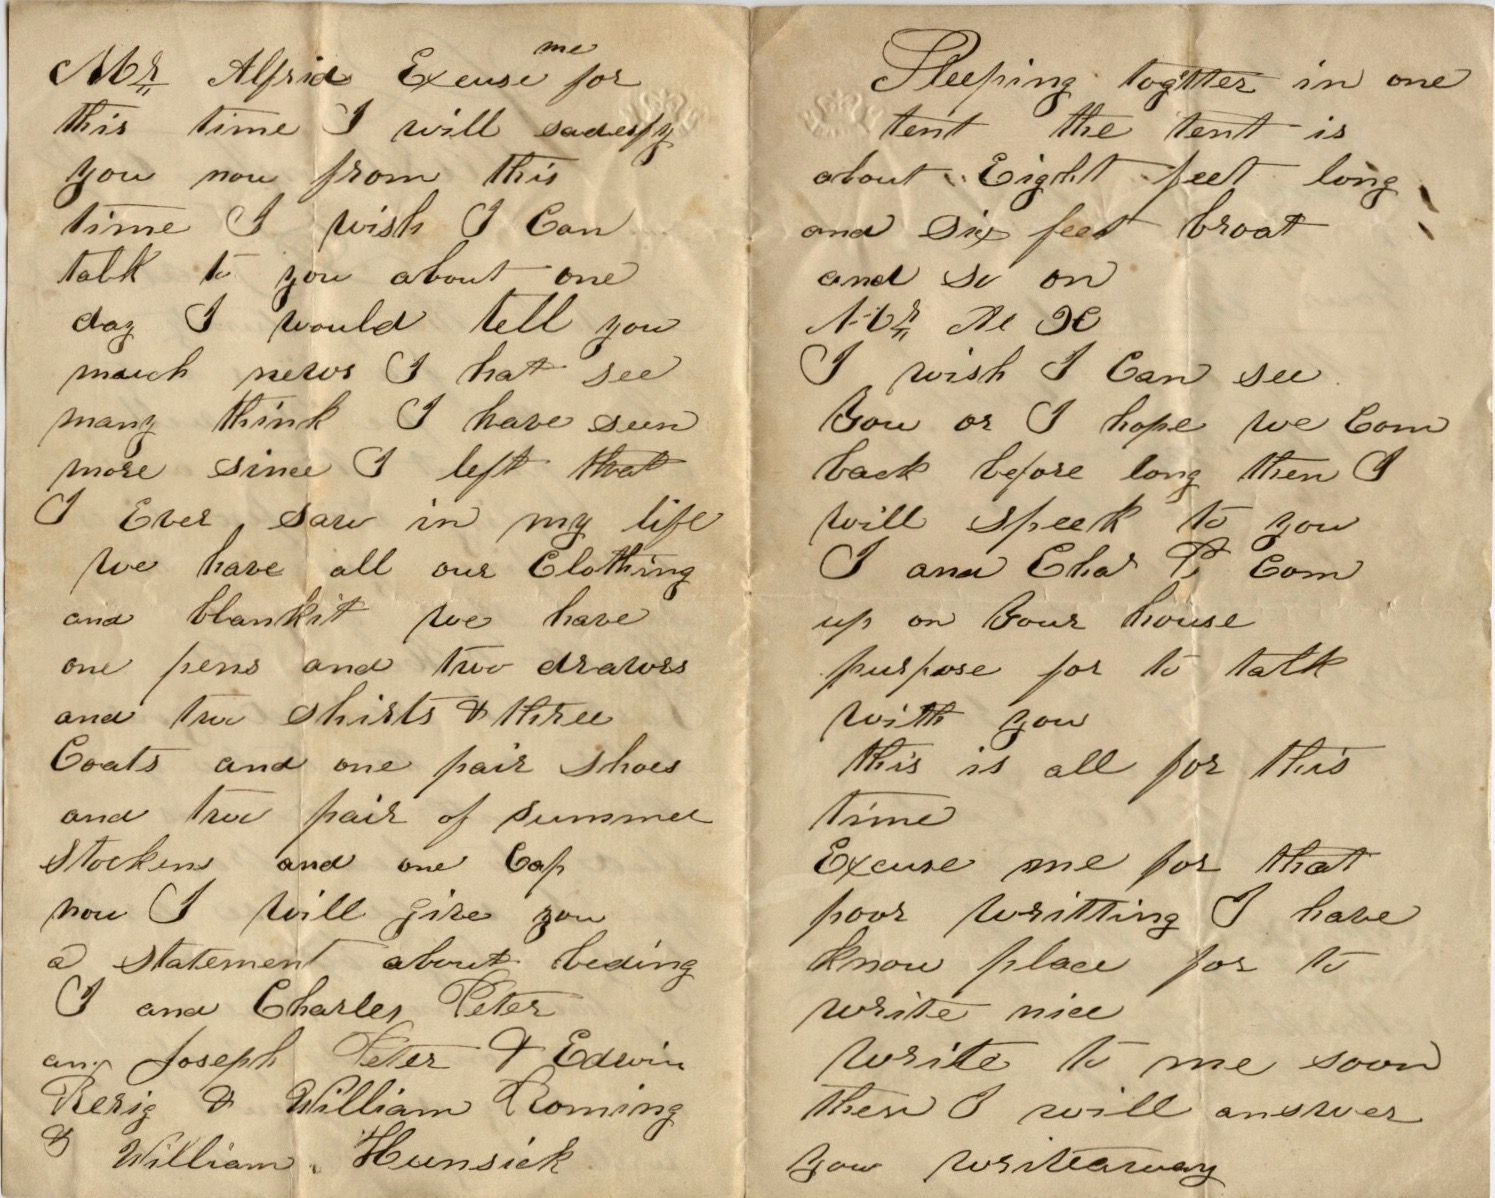 Mr Alfrid Excuse me for
this time I will sadesfy
you now from this
time I wish I Can
talk to you about one
day I would tell you
mauch news I hat see
many think I have seen
more since I left that
I Ever saw in my life
we have all our Clothing
and blankit we have
one pens and two drawers
and two shirts & three
Coats and one pair shoes
and two pair of summer
Stockens and one Cap
now I will give you
a statement about beding
I and Charles Peter
and Joseph Peter & Edwin
Rerig & William Roming
& William Hunsick
Sleeping togtter in one
tent the tent is
about Eight feet long
and Six feet broat
and so on
Mr Al
I wish I Can see
You or I hope we Com
back before long then I
will speek to you
I and Chas P Com
up on Your house
purpose for to talk
with you
this is all for this
time
Excuse me for that
poor writting I have
know place for to
write nice
write to me soon
then I will answer
you writeaway